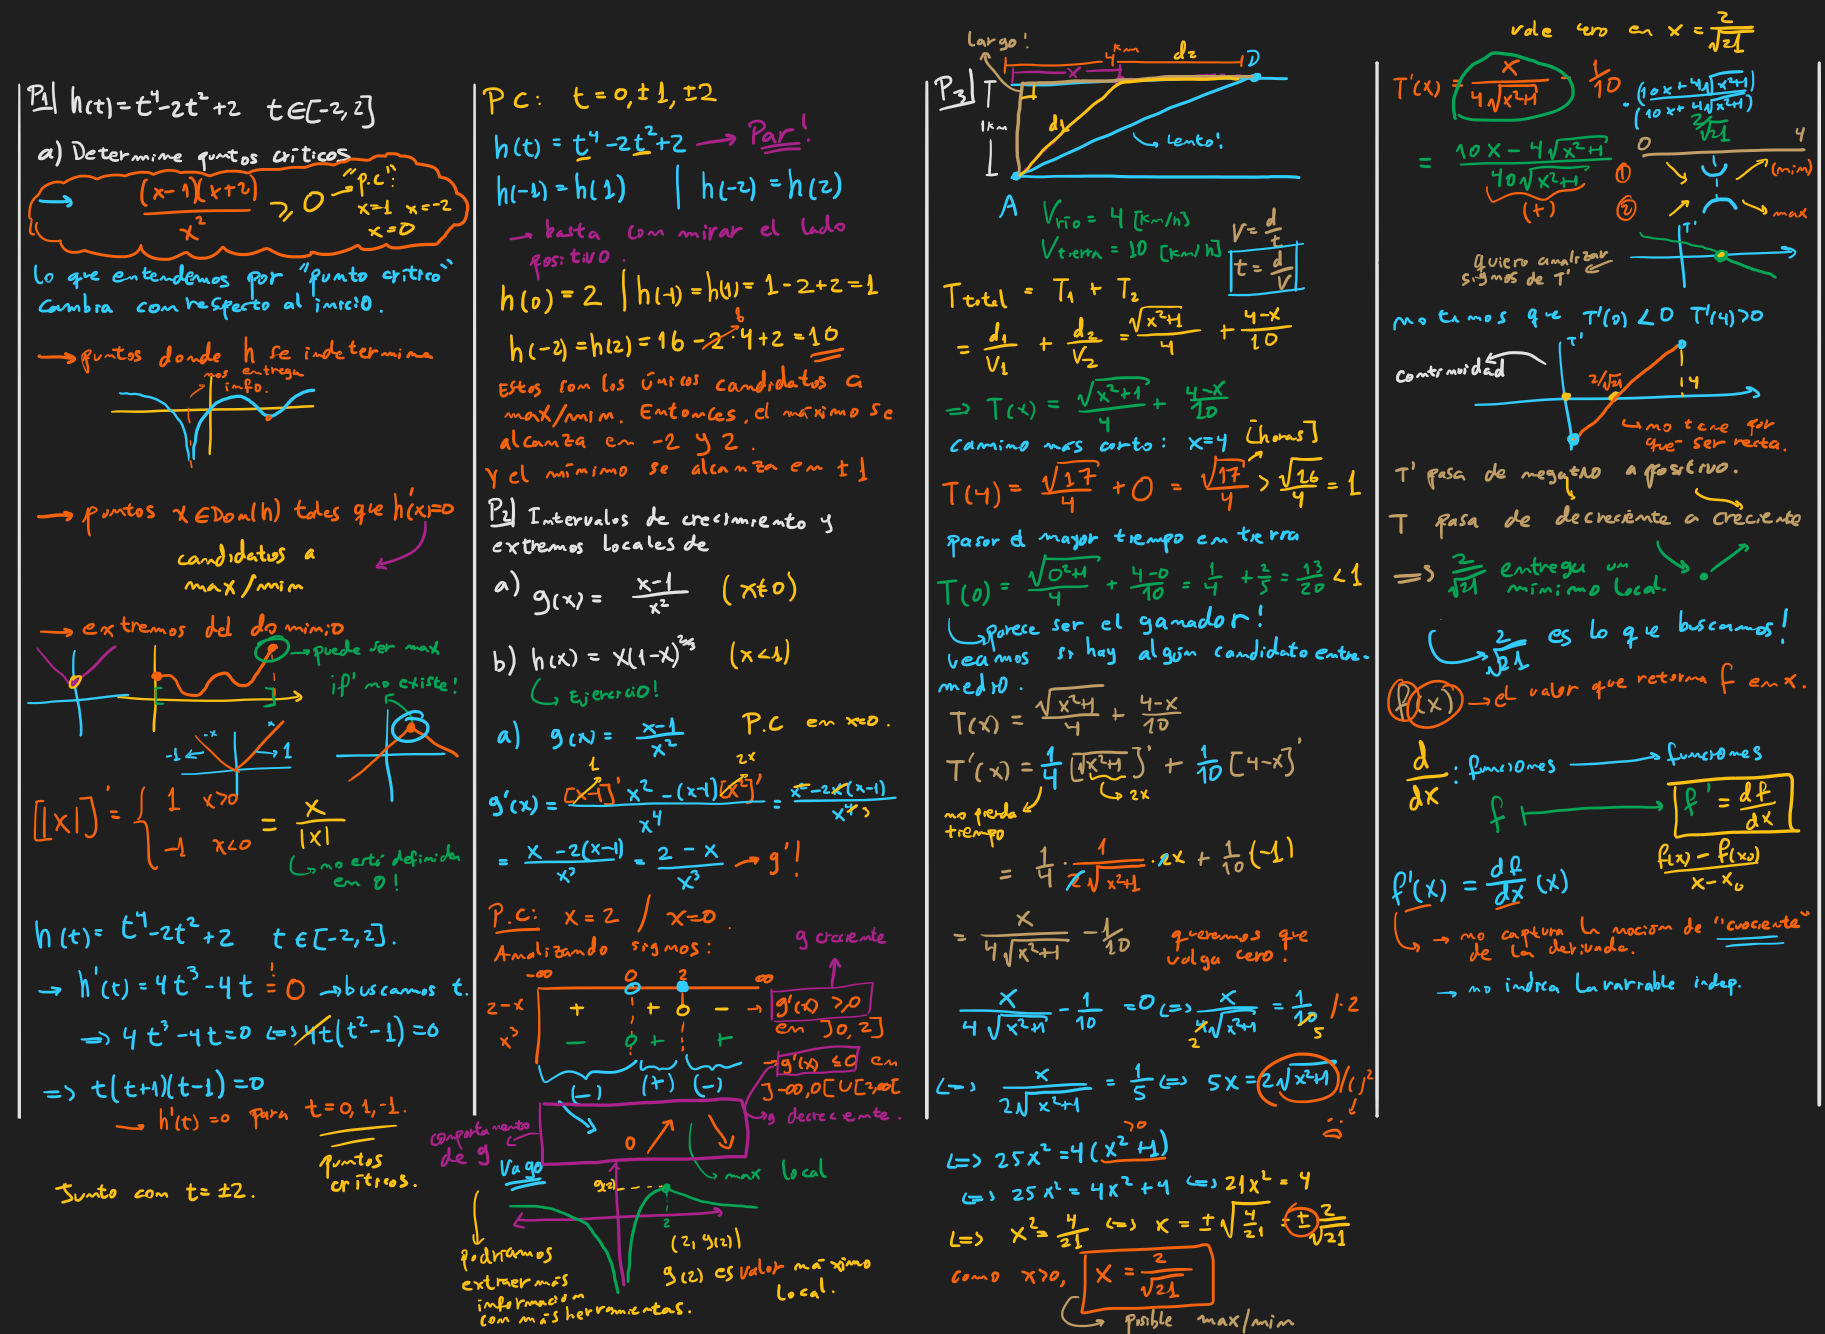 P1 h(t)=t⁴-2t²+2 t∈[-2,2]
a) Determine puntos críticos
(x-1)(x+2)/x² ≥ 0 → "P.C":
x=1 x=-2
x=0
lo que entendemos por "punto crítico"
cambia con respecto al inicio.
→ puntos donde h se indetermina
nos entrega
info.
→ puntos x∈Dom(h) tales que h'(x)=0
candidatos a
max/min
→ extremos del dominio
→ puede ser max
f' no existe!
-x x
-1 ← → 1
[|x|]' = { 1 x>0
-1 x<0 = x/|x|
→ no está definida
en 0!
h(t)= t⁴-2t²+2 t∈[-2,2].
→ h'(t)=4t³-4t = 0 → buscamos t.
⇒ 4t³-4t=0 ⇔ 4t(t²-1)=0
⇒ t(t+1)(t-1)=0
→ h'(t)=0 para t=0,1,-1.
puntos
críticos.
Junto con t=±2.
PC: t=0,±1,±2
h(t)=t⁴-2t²+2 → Par!
h(-1)=h(1) | h(-2)=h(2)
→ basta con mirar el lado
positivo.
h(0)=2 | h(-1)=h(1)=1-2+2=1
h(-2)=h(2)=16-2·4+2=10
Estos son los únicos candidatos a
max/min. Entonces, el máximo se
alcanza en -2 y 2.
y el mínimo se alcanza en ±1
P2 Intervalos de crecimiento y
extremos locales de
a) g(x)= (x-1)/x² (x≠0)
b) h(x)= x(1-x)^(2/5) (x<1)
→ Ejercicio!
a) g(x)= (x-1)/x² P.C en x=0.
1 2x
g'(x)= ([x-1]' x² - (x-1)[x²]')/x⁴ = (x²-2x(x-1))/x⁴ 3
= (x-2(x-1))/x³ = (2-x)/x³ → g'!
P.C: x=2 / x=0.
Analizando signos:
g creciente
-∞ 0 2 ∞
2-x + + 0 - → g'(x) ≥0
en ]0,2]
x³ - 0 + +
→ g'(x) ≤0 en
(-) (+) (-) ]-∞,0[∪[2,∞[
→ g decreciente.
comportamiento
de g
0
→ max local
Vago
g(2)
2
(2,g(2))
podríamos
extraer más
información
con más herramientas.
g(2) es valor máximo
local.
P3
largo!
4 km d2 D
x
1km
d1
→ lento!
A
Vrio = 4 [km/h]
Vtierra = 10 [km/h]
V= d/t
t= d/V
Ttotal = T1 + T2
= d1/V1 + d2/V2 = √(x²+1)/4 + (4-x)/10
⇒ T(x) = √(x²+1)/4 + (4-x)/10
camino más corto: x=4 [horas]
T(4)= √17/4 + 0 = √17/4 > √16/4 = 1
pasar el mayor tiempo en tierra
T(0)= √(0²+1)/4 + (4-0)/10 = 1/4 + 2/5 = 13/20 < 1
→ parece ser el ganador!
veamos si hay algún candidato entre-
medio.
T(x)= √(x²+1)/4 + (4-x)/10
T'(x)= 1/4 [√(x²+1)]' + 1/10 [4-x]'
→ 2x
no pierda
tiempo
= 1/4 · 1/(2√(x²+1)) · 2x + 1/10 (-1)
= x/(4√(x²+1)) - 1/10
queremos que
valga cero!
x/(4√(x²+1)) - 1/10 = 0 ⇔ x/(4√(x²+1)) = 1/10 /·2
2 5
⇔ x/(2√(x²+1)) = 1/5 ⇔ 5x=2√(x²+1) /( )²
>0
⇔ 25x²=4(x²+1)
⇔ 25x²=4x²+4 ⇔ 21x²=4
⇔ x²= 4/21 ⇔ x = ±√(4/21) = ± 2/√21
como x>0, x = 2/√21
→ posible max/min
vale cero en x = 2/√21
T'(x) = x/(4√(x²+1)) - 1/10 · (10x+4√(x²+1))/(10x+4√(x²+1))
= (10x-4√(x²+1))/(40√(x²+1))
(+)
0 2/√21 4
① (min)
② max
T'
quiero analizar
signos de T'
notamos que T'(0)<0 T'(4)>0
continuidad
T'
2/√21 4
→ no tiene por
qué ser recta.
T' pasa de negativo a positivo.
T pasa de decreciente a creciente
⇒ 2/√21 entrega un
mínimo local.
→ 2/√21 es lo que buscamos!
f(x) → el valor que retorna f en x.
d/dx : funciones → funciones
f ↦ f' = df/dx
(f(x)-f(x₀))/(x-x₀)
f'(x) = df/dx (x)
→ no captura la noción de "cuociente"
de la derivada.
→ no indica la variable indep.